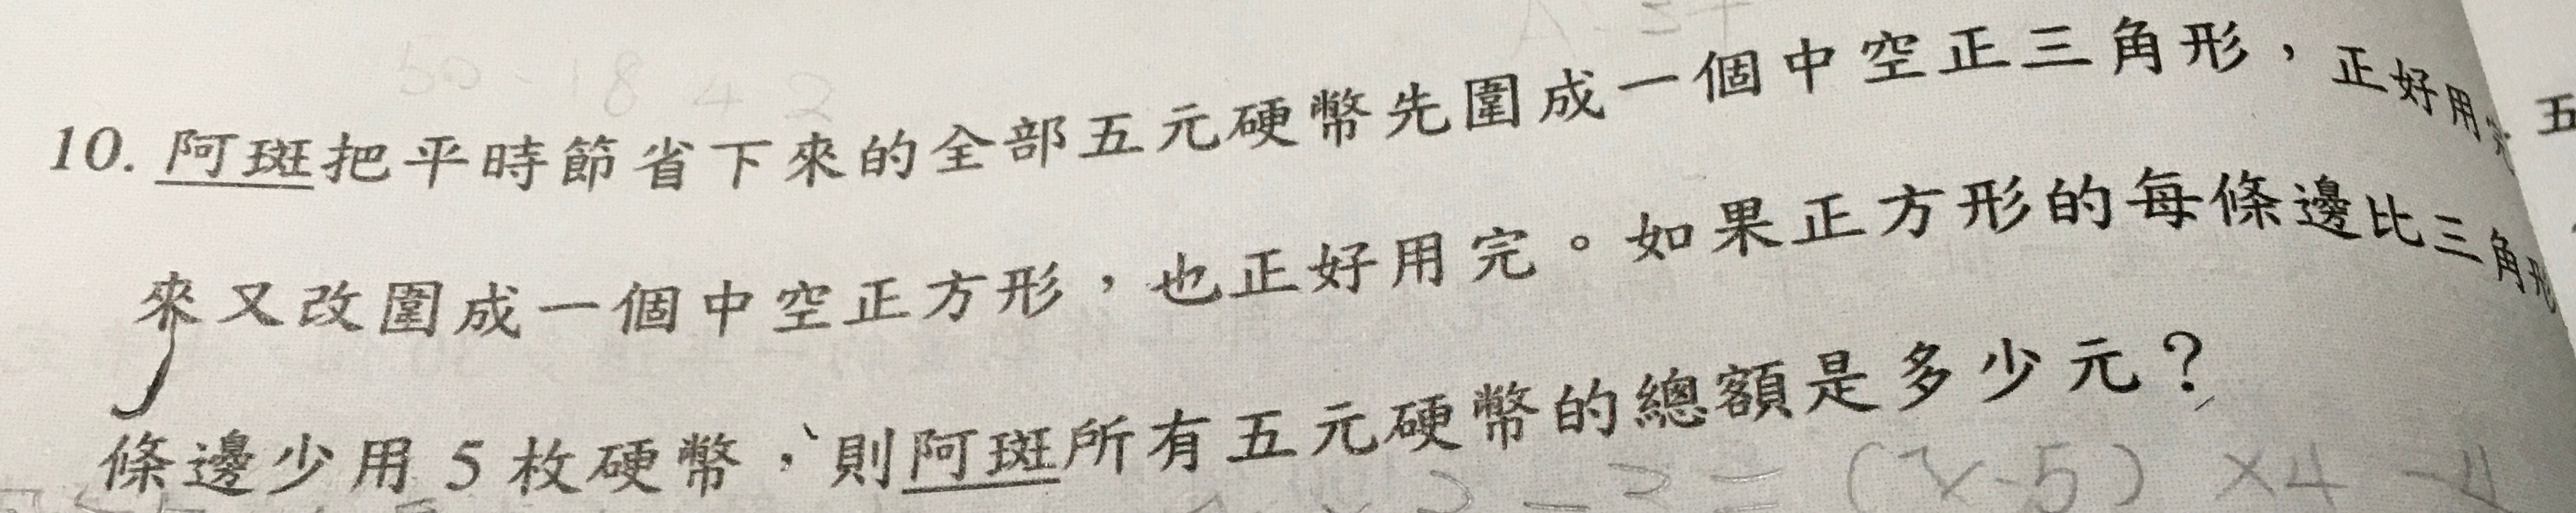 A=34
50 18 4 2
10. 阿斑把平時節省下來的全部五元硬幣先圍成一個中空正三角形，正好用完
五
來又改圍成一個中空正方形，也正好用完。如果正方形的每條邊比三角形
條邊少用5枚硬幣，則阿斑所有五元硬幣的總額是多少元？
-3=(x-5)×4-4